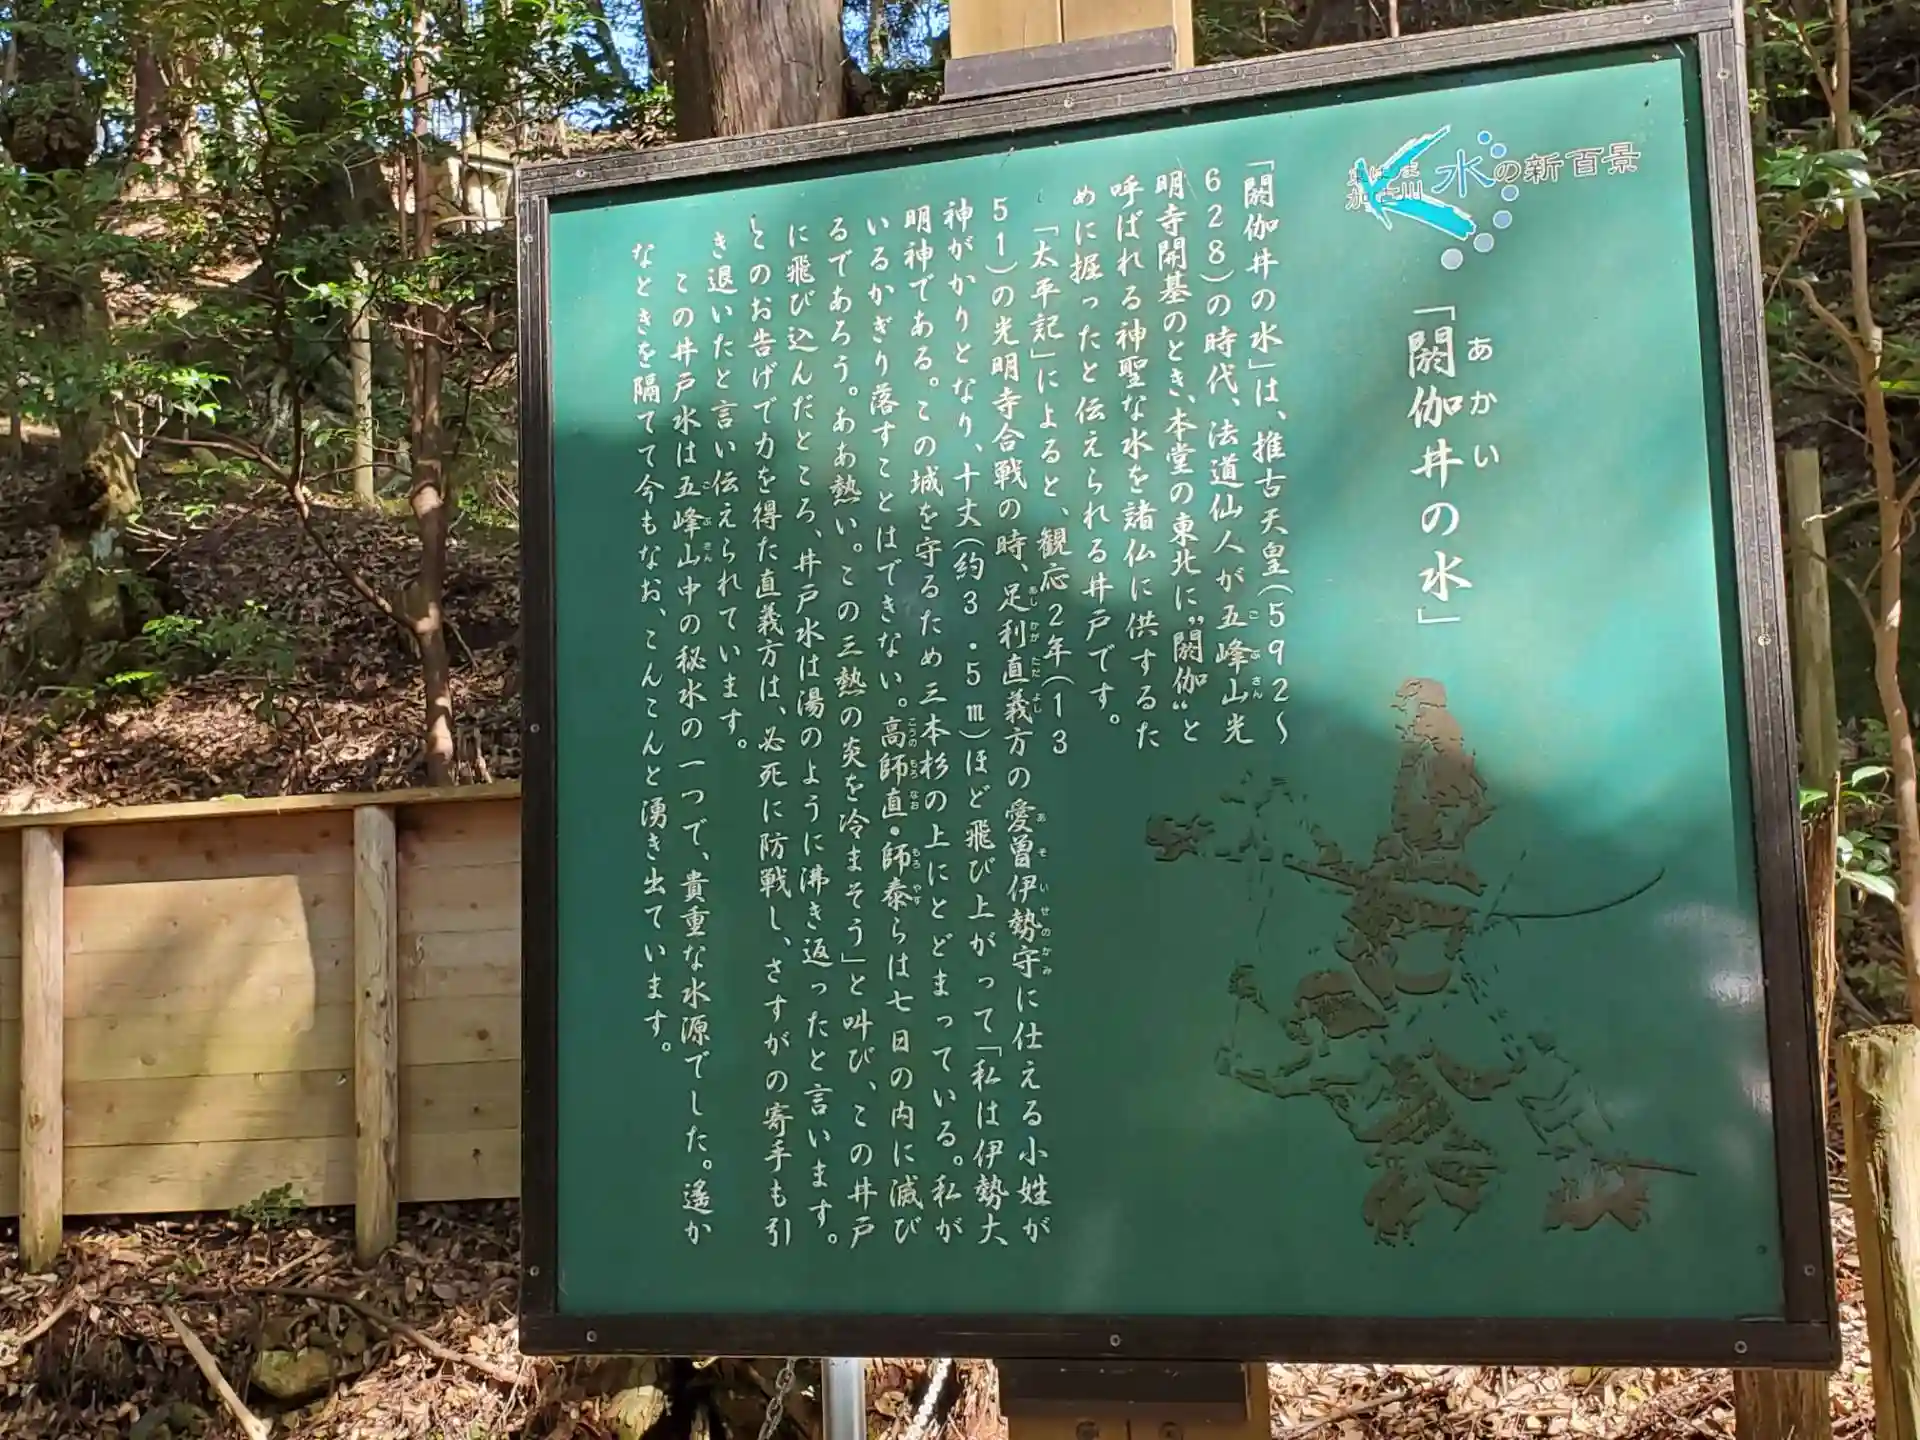 東はりま
加古川
水の新百景
「閼伽井の水」
あかい
「閼伽井の水」は、推古天皇（592〜
628）の時代、法道仙人が五峰山光
ごぶさん
明寺開基のとき、本堂の東北に〝閼伽〟と
呼ばれる神聖な水を諸仏に供するた
めに掘ったと伝えられる井戸です。
「太平記」によると、観応2年（13
51）の光明寺合戦の時、足利直義方の愛曽伊勢守に仕える小姓が
あしかがただよし
あそいせのかみ
神がかりとなり、十丈（約3．5m）ほど飛び上がって「私は伊勢大
明神である。この城を守るため三本杉の上にとどまっている。私が
いるかぎり落すことはできない。高師直・師泰らは七日の内に滅び
こうのもろなお
もろやす
るであろう。ああ熱い。この三熱の炎を冷まそう」と叫び、この井戸
に飛び込んだところ、井戸水は湯のように沸き返ったと言います。
とのお告げで力を得た直義方は、必死に防戦し、さすがの寄手も引
き退いたと言い伝えられています。
この井戸水は五峰山中の秘水の一つで、貴重な水源でした。遙か
ごぶさん
なときを隔てて今もなお、こんこんと湧き出ています。